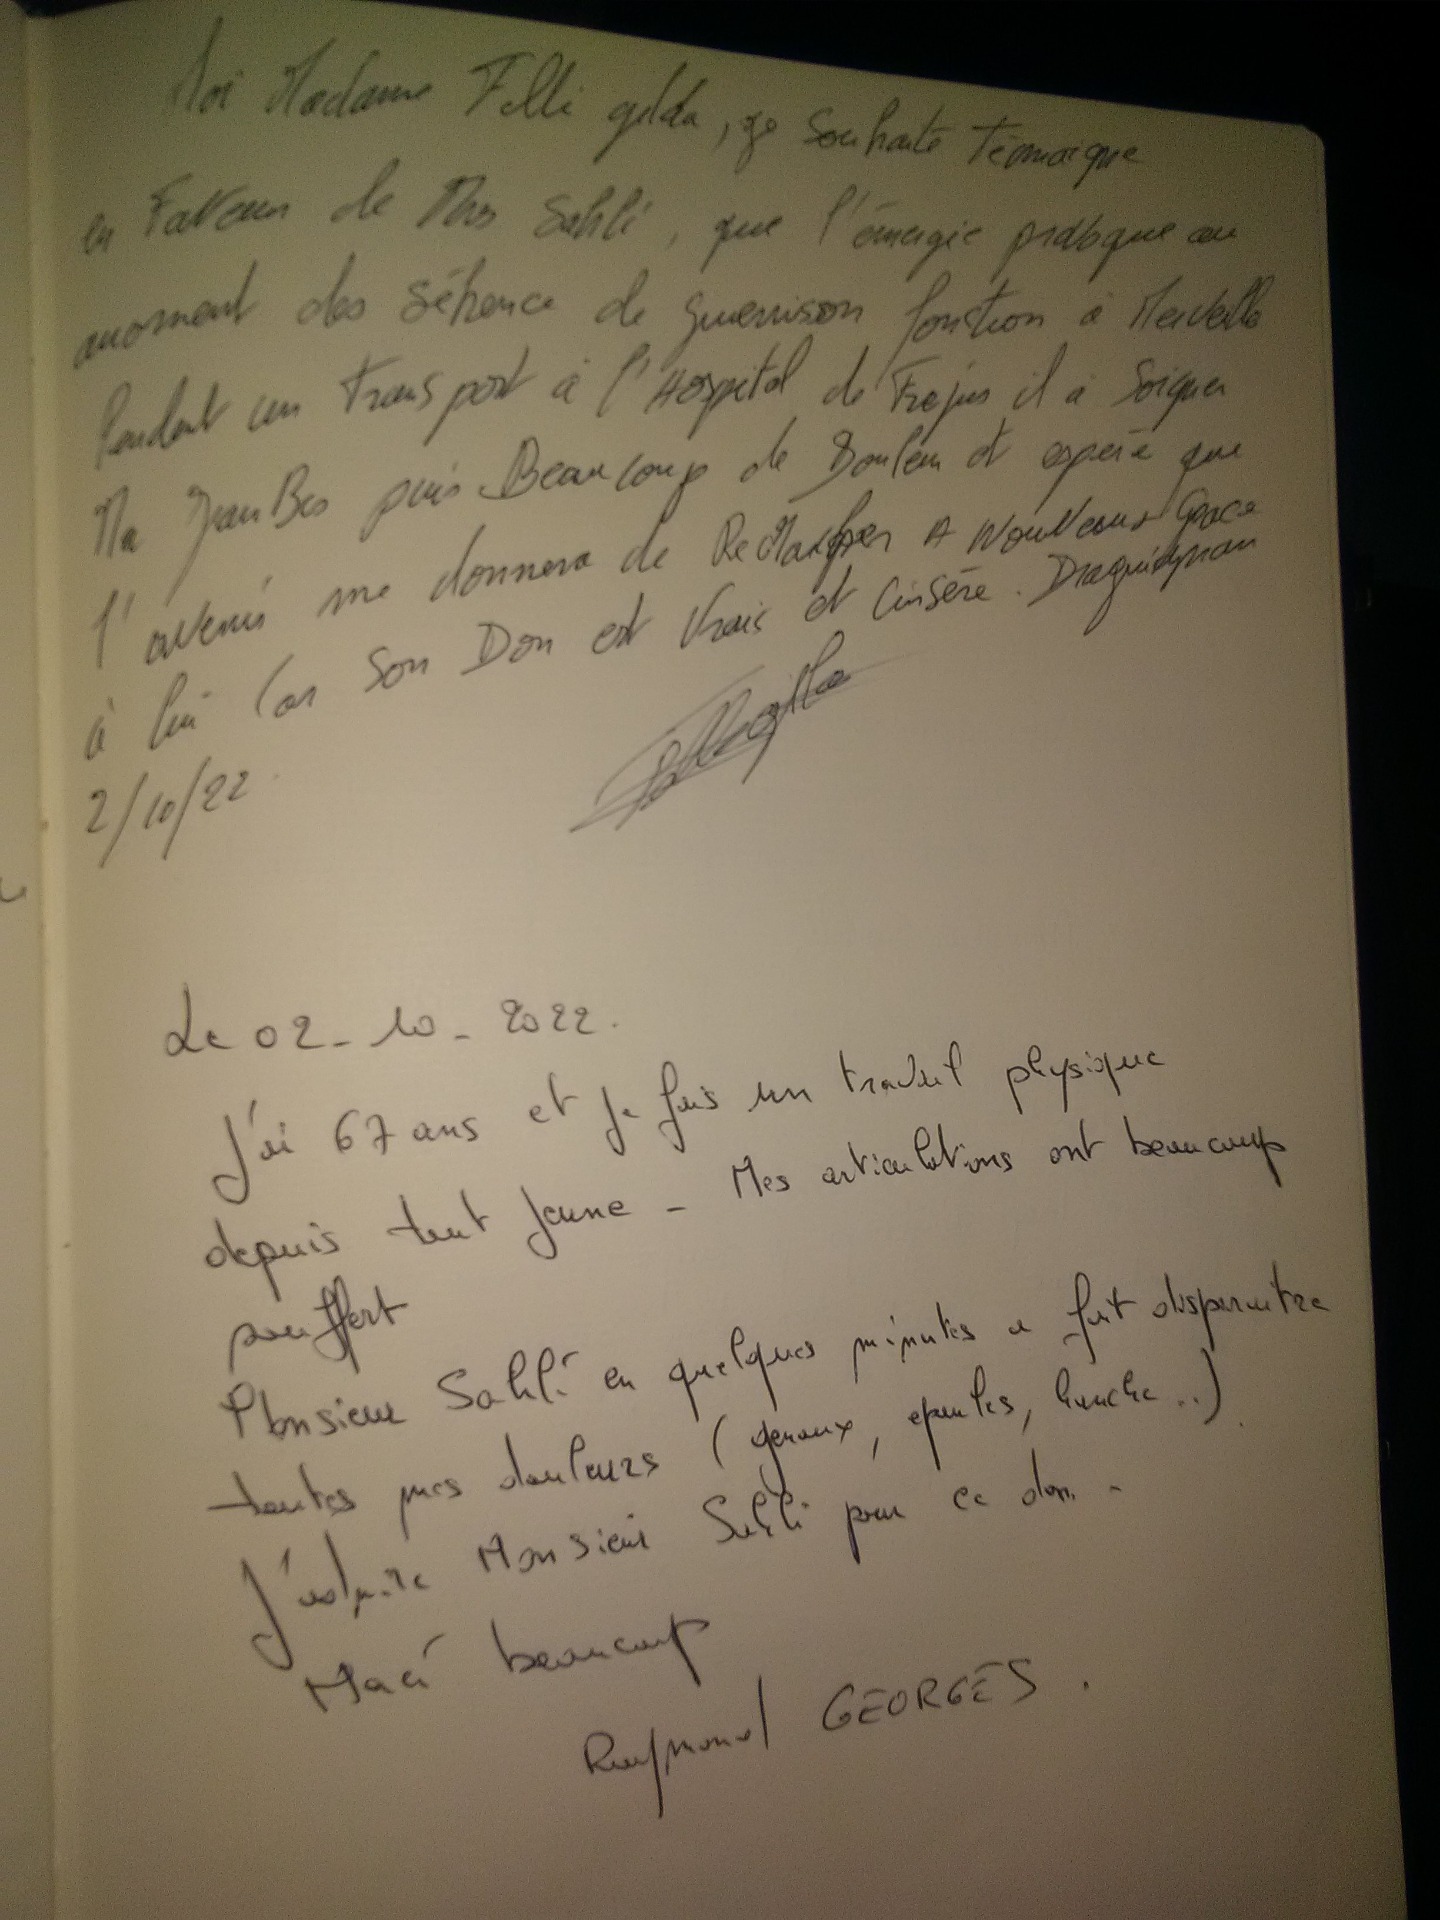 Moi Madame Felli gilda, je souhaite Témoigne
en Faveur de Mrs Sahli, que l'énergie pratique au
moment des séhance de guerrison fonction à Merveille
Pendant un Transport à l'Hospital de Frejus il a Soigner
Ma JamBes puis Beaucoup de Douleur et espère que
l'avenir me donnera de ReMarcher A Nouveaux Grace
à lui Car Son Don est Vrais et Cinsére. Draguignan
2/10/22.
Le 02-10-2022.
J'ai 67 ans et je fais un travail physique
depuis tout jeune - Mes articulations ont beaucoup
souffert
Monsieur Sahli en quelques minutes a fait disparaitre
toutes mes douleurs (genoux, epaules, hanche..).
J'admire Monsieur Sahli pour ce don. -
Merci beaucoup
Raymond GEORGES.